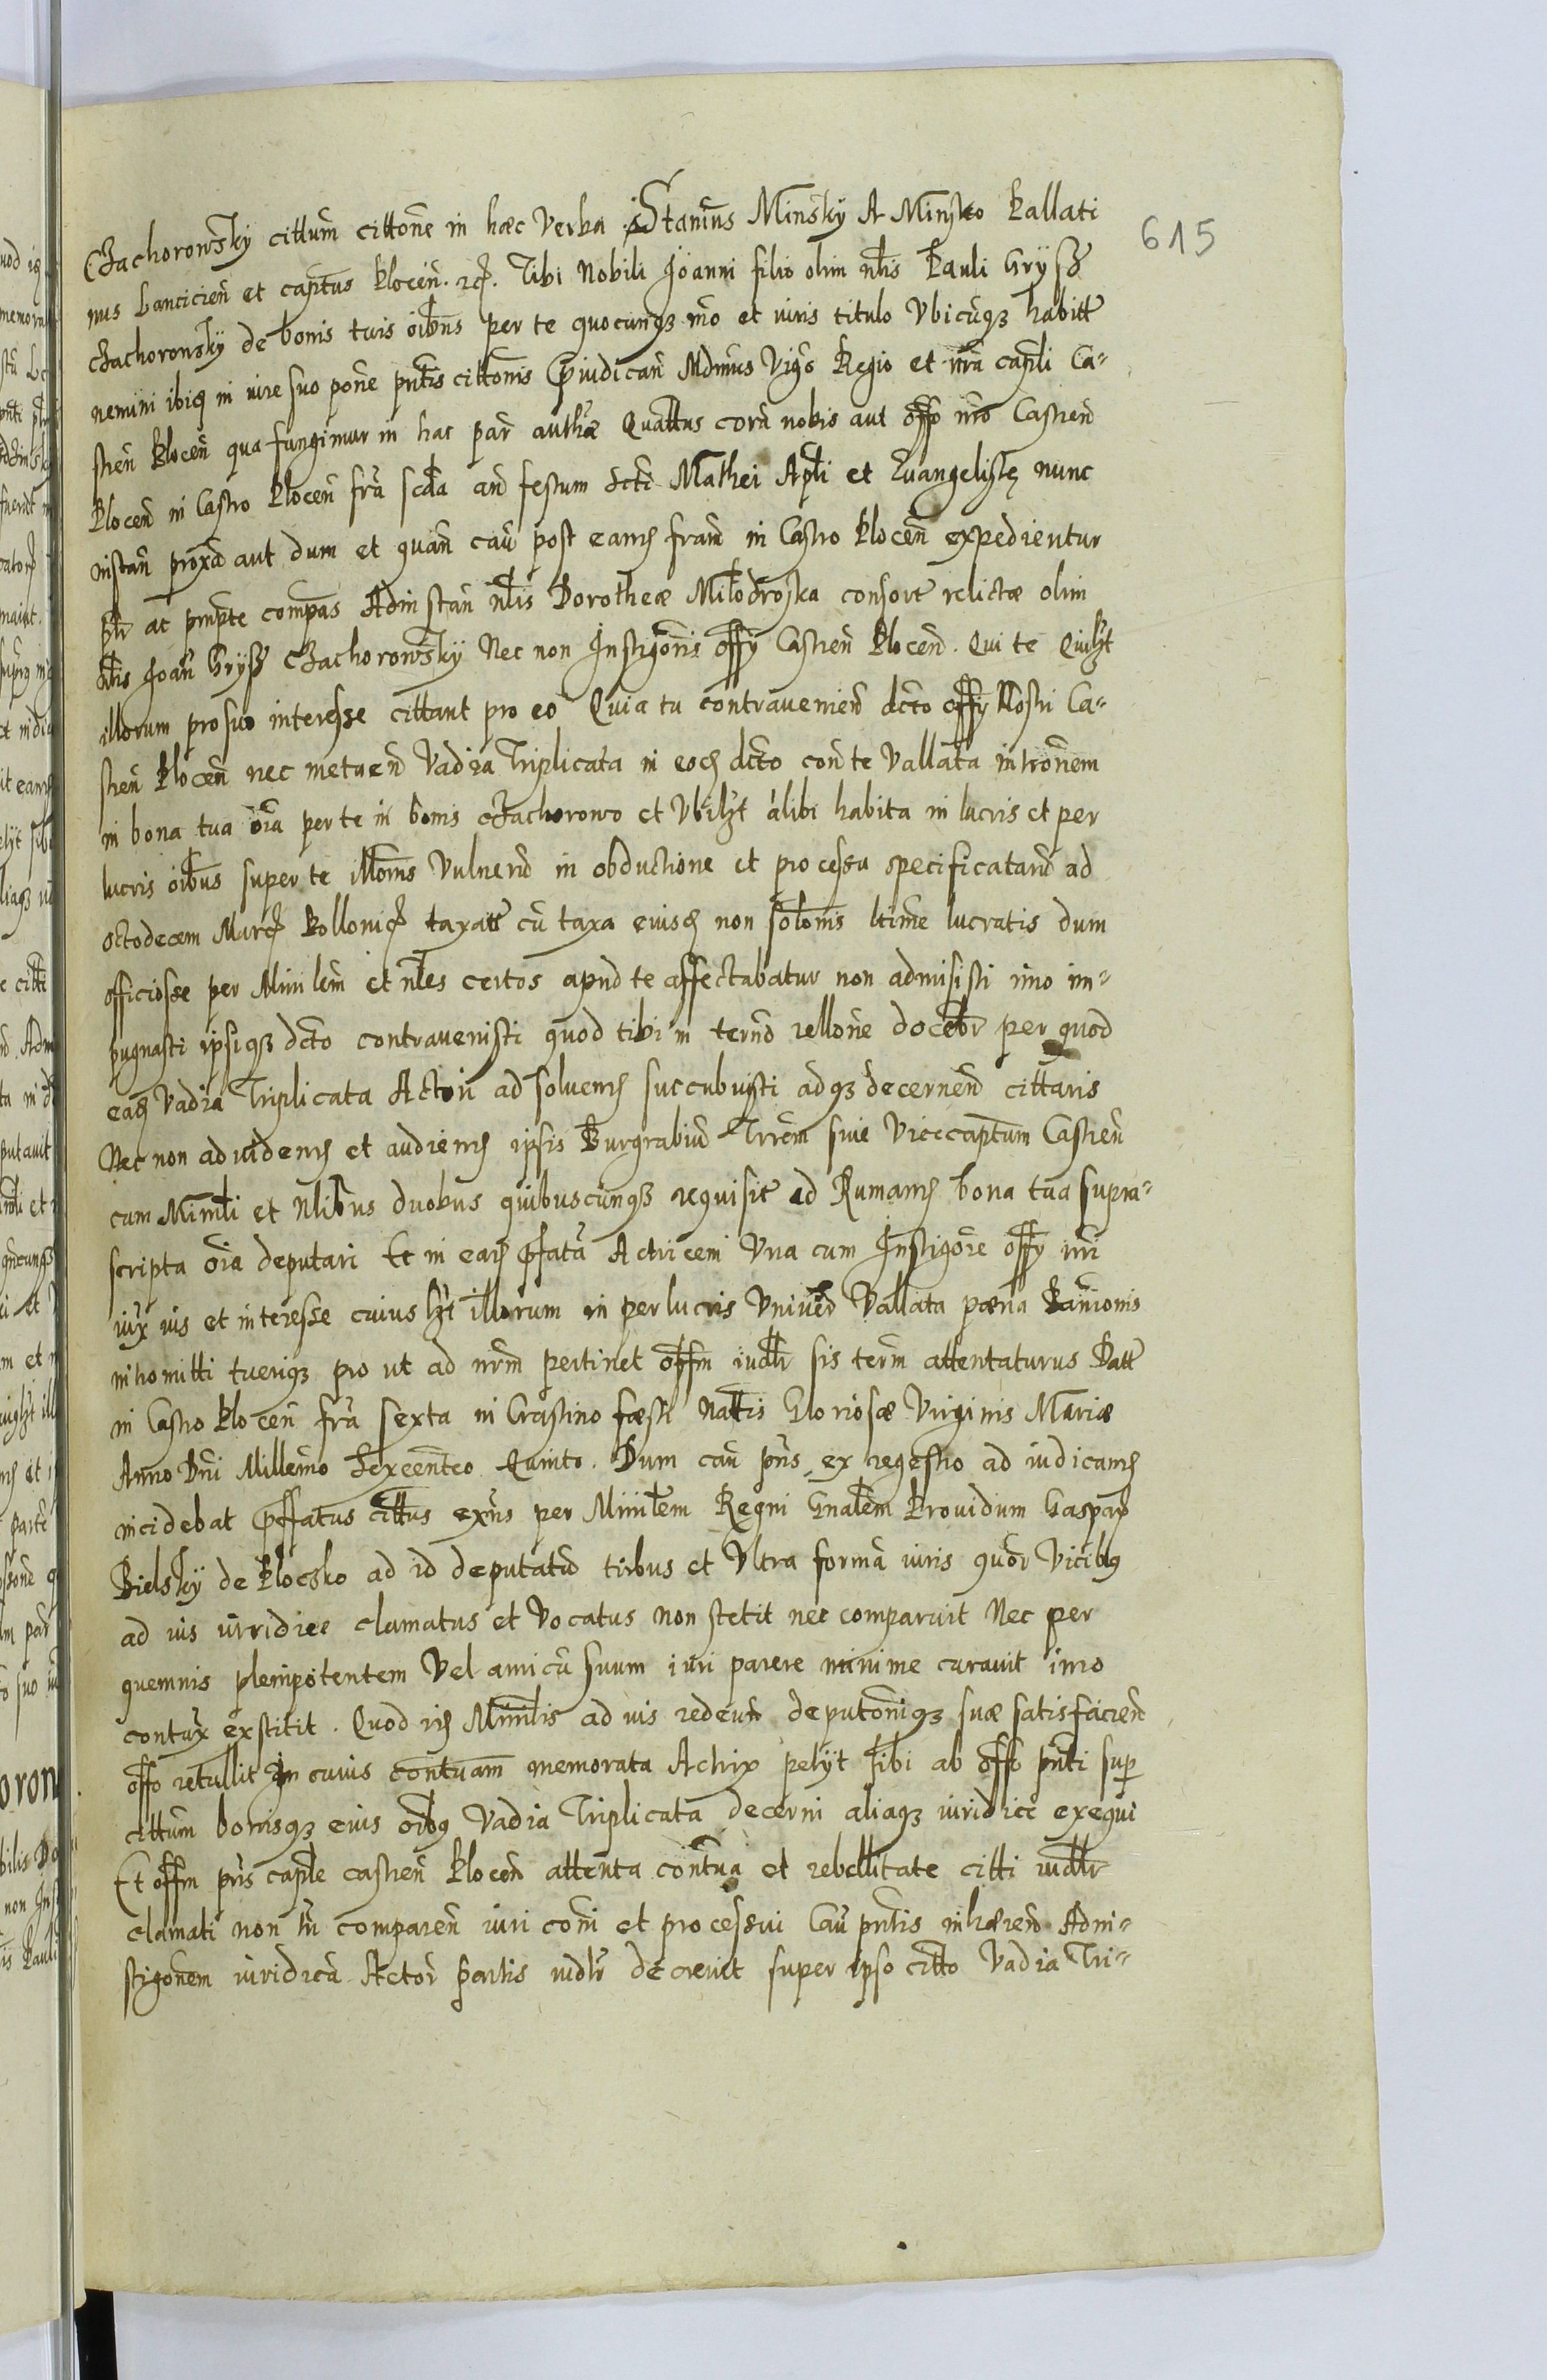 615
Czachorowsky cittum cittone in hæc Verba Stanius Minsky A Minsko Pallati
nus Lancicien et captus Plocen. Tibi Nobili Joanni filio olim nlis Pauli Grysz
Czachorowsky de bonis tuis oibus per te quocunqz mo et iuris titulo Vbicuqz habitt
nemini ibiq in iure suo pone pntis cittonis Ꝑiudican Mdmus Vigo Regio et nra capnli Ca-
stren Plocen qua fungimur in hac par authæ Quattus coru nobis aut offo nro Castren
Plocen in Castro Plocen fra scda an festum scti Mathei Apli et Euangelistę nunc
instan proxa aut dum et quan cau post eand fram in Castro Plocen expedientur
plr ac pmpte compas Ad instan nlis Dorotheæ Miłodroska consort relictæ olim
nlis Joan Grysz Czachorowsky Nec non Instigoris offy Castren Plocen. Qui te Quilzt
illorum pro suo interesse cittant pro eo Quia tu contraueniend dcto offy Nostri Ca-
stren Plocen nec metuend Vadia Triplicata in eod dcto con te Vallata intronem
in bona tua oia per te in bonis Czachorowo et Vbilzt alibi habita in lucris et per
lucris oibus super te illoms Vulnerud in obductione et processu specificatard ad
octodecem Marc Pollonic taxatt cu taxa eiusd non soloms ltime lucratis dum
officiosse per Minlem et nles certos apud te affectabatur non admisisti imo im-
pugnasti ipsiqz dcto contrauenisti quod tibi in termo rellone docebr per quod
ead Vadia Triplicata Actori ad soluend succubuisti adqz decernend cittaris
Nec non ad uidend et audiend ipsis Burgrabiu Trrem siue Vicecaptum Castren
cum Minli et Nlibus duobus quibuscunqz requisit ad Rumand bona tua supra-
scripta oia deputari Et in ead ꝑfata Actricem Vna cum Instigore offy nri
iux ius et interesse cuius lzt illorum in perlucris Vniuer Vallata pæna Banionis
intromitti tueriqz pro ut ad nrm pertinet offm iudlr sis term attentaturus Datt
in Castro Plocen fra sexta in Crastino fæsti Nattis Gloriosæ Virginis Mariæ
Anno Dni Millemo Sexcenteo Quinto. Dum cau pns ex regestro ad iudicand
incidebat ꝑffatus cittus exns per Minlem Regni Gnalem Prouidum Gaspar
Bielsky de Plocsko ad id deputatu tribus et Vltra forma iuris quor Vicibq
ad ius iuridice clamatus et Vocatus non stetit nec comparuit Nec per
quemuis plenipotentem Vel amicu suum iuri parere minime curauit imo
contux exstitit. Quod id Minlis ad ius redeun deputoniqz suæ satisfacien
offo retullit In cuius contuam memorata Actrix petyt sibi ab offo pnti sup
cittum bonisqz eius oibq Vadia Triplicata decerni aliaqz iuridice exequi
Et offm pns caple castren Plocen attenta contua et rebellitate citti iudlr
clamati non tn comparen iuri coni et processui Cau pntis inhæren Adin-
stigonem iuridica Actor Partis iudlr decreuit super ipso citto Vadia Tri-